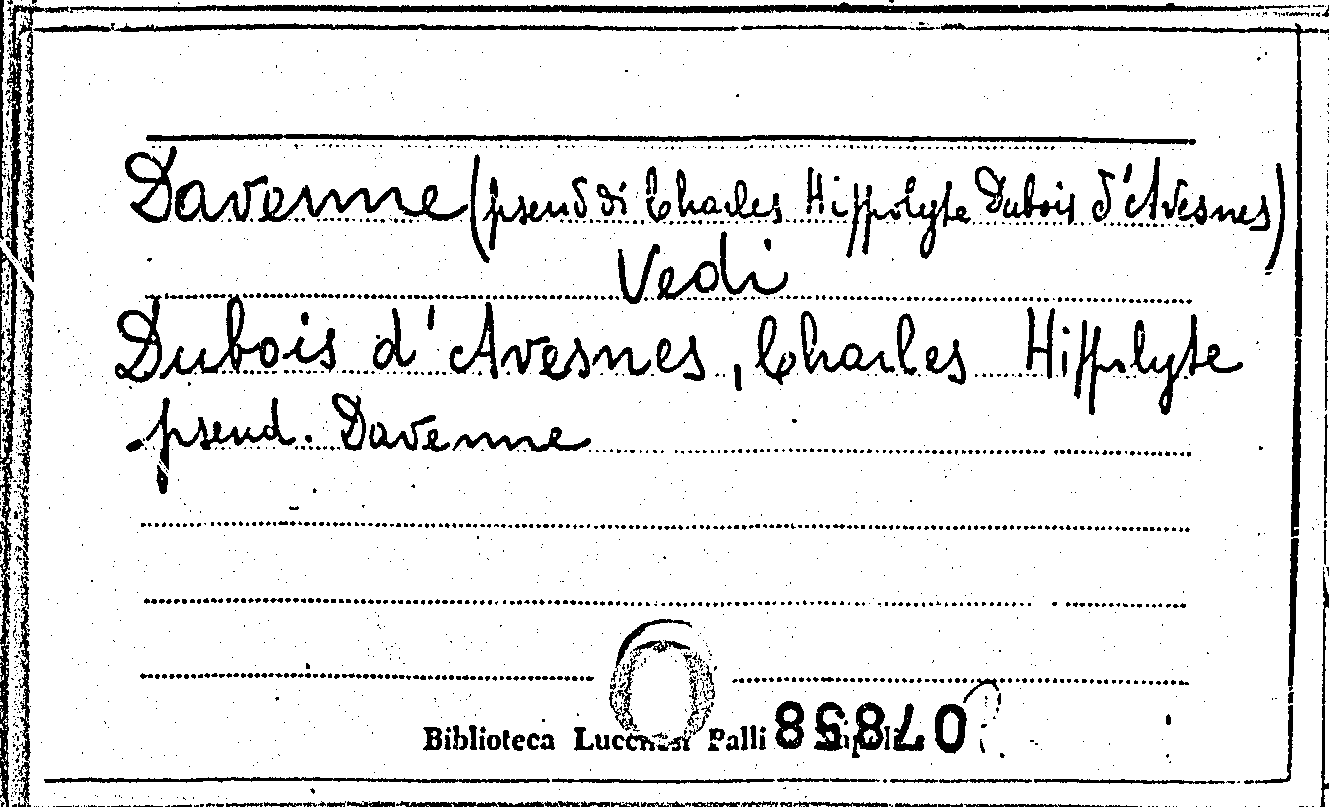 Davenne (pseud di Charles Hippolyte Dubois d'Avesnes)
Vedi
Dubois d'Avesnes, Charles Hippolyte
pseud. Davenne
Biblioteca Lucchesi Palli
07858